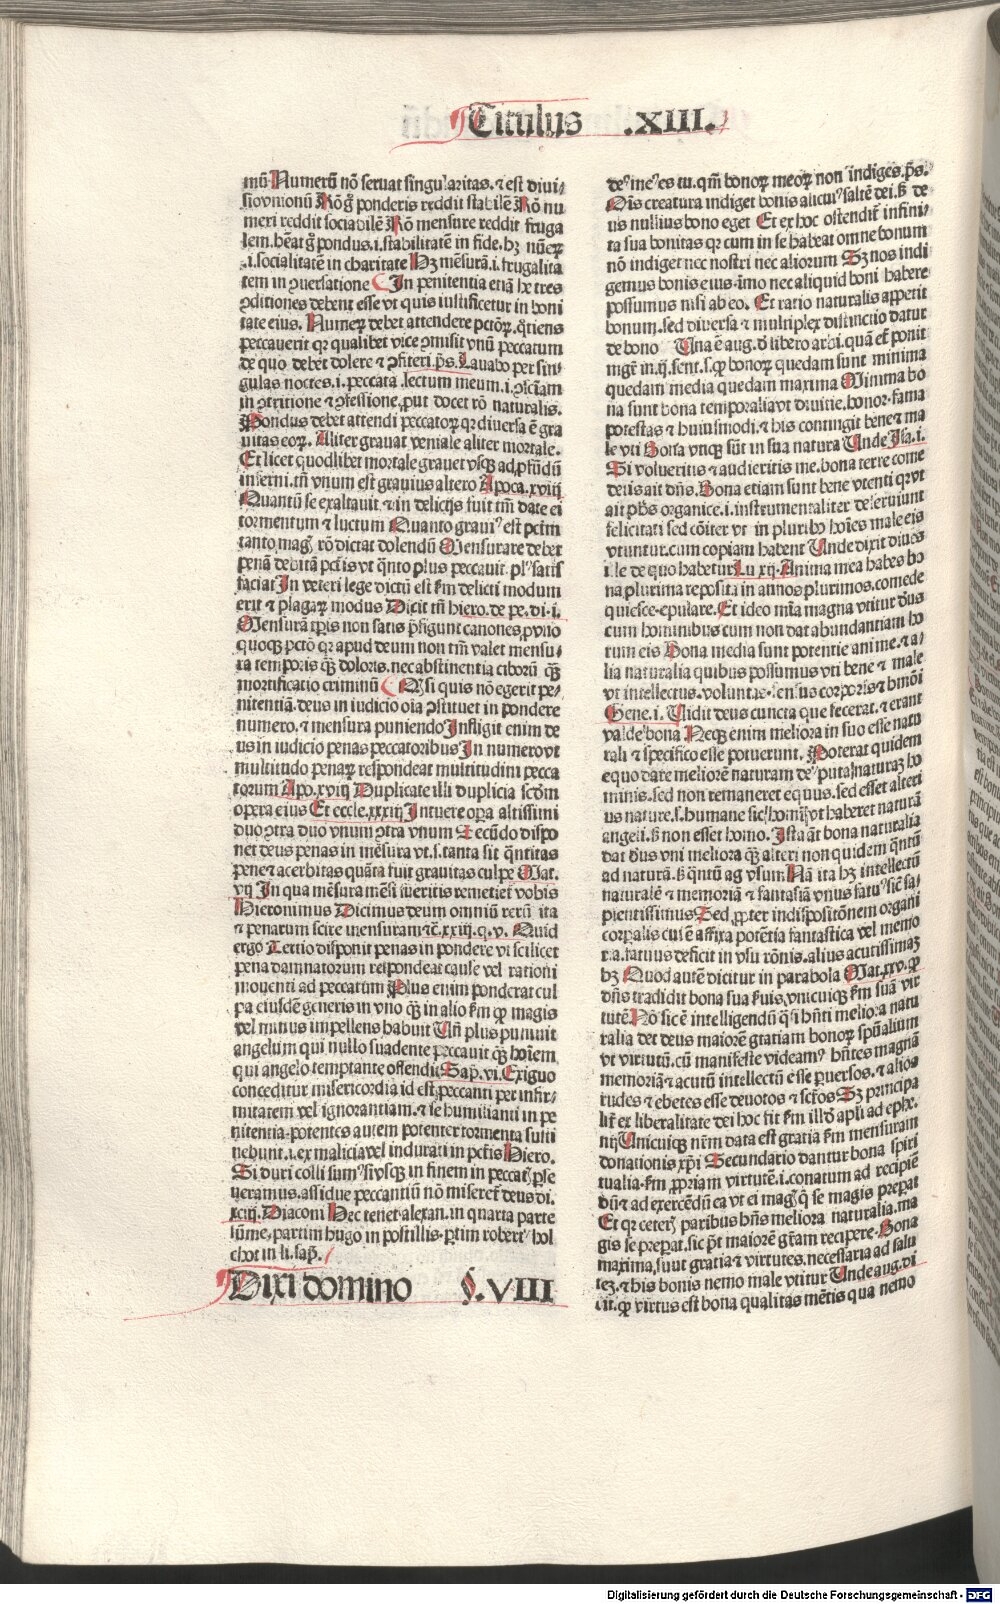 Titulus .XIII.
mū Numerū nō seruat singularitas. ⁊ est diui⸗
sio vnionū Rō gͦ ponderis reddit stabilē Rō nu
meri reddit sociabilē Rō mensure reddit fruga
lem. hēat gͦ pondus .i. stabilitatē in fide. hʒ nūeꝝ
.i. socialitatē in charitate Hʒ mēsurā .i. frugalita
tem in ꝯuersatione In penitentia etiā he tres
ꝯditiones debent esse vt quis iustificetur in boni
tate eius. Numeꝝ debet attendere pctōꝝ. q̄tiens
peccauerit qꝛ qualibet vice ꝯmisit vnū peccatum
de quo debet dolere ⁊ ꝯfiteri. ps. Lauabo per sin⸗
gulas noctes .i. peccata .lectum meum .i. ꝯsciam
in ꝯtritione ⁊ ꝯfessione, put docet rō naturalis.
Pondus debet attendi peccatoꝝ qꝛ diuersa ē gra
uitas eoꝝ. Aliter grauat veniale aliter mortale.
Et licet quodlibet mortale grauet vsqꝫ ad ꝓfūdū
inferni. tn̄ vnum est grauius altero Apoca. xviij
Quantū se exaltauit ⁊ in delicijs fuit tm̄ date ei
tormentum ⁊ luctum Quanto graui⁹ est pctm
tanto mag̉ rō dictat dolendū Mensurare debet
penā debitā pctis vt q̄nto plus peccauit. pl⁹ satis
faciat In veteri lege dictū est ẜm delicti modum
erit ⁊ plagaꝝ modus Dicit tn̄ hiero. de pe. di. i.
Mensurā tꝑis non satis p̄figunt canones, p vno
quoqꝫ pctō qꝛ apud deum non tm̄ valet mensu⸗
ra temporis qꝫ doloris. nec abstinentia ciborū qꝫ
mortificatio criminū Qsi quis nō egerit pe⸗
nitentiā. deus in iudicio oīa ꝯstituet in pondere
numero. ⁊ mensura puniendo Infligit enim de
us in iudicio penas peccatoribus In numero vt
multitudo penaꝝ respondeat multitudini pecca
torum Apo. xviij Duplicate illi duplicia scdm
opera eius Et eccle. xxxiij Intuere opa altissimi
duo ꝯtra duo vnum ꝯtra vnum Secūdo dispo
net deus penas in mēsura vt .s. tanta sit q̄ntitas
pene ⁊ acerbitas quāta fuit grauitas culpe Mat.
vij In qua mēsura mēsi fueritis remetiet̉ vobis
Hieronimus Dicimus deum omniū rerū ita
⁊ penarum scire mensuram ⁊c̄. xxiij. q. v. Quid
ergo Tertio disponit penas in pondere vt scilicet
pena damnatorum respondeat cause vel rationi
mouenti ad peccatum Plus enim ponderat cul
pa eiusdē generis in vno qꝫ in alio ẜm ꝙ magis
vel minus impellens habuit Uñ plus punuit
angelum qui nullo suadente peccauit qꝫ hoīem
qui angelo temptante offendit Sap. vi. Exiguo
conceditur misericordia id est peccanti per infir⸗
mitatem vel ignorantiam. ⁊ se humilianti in pe
nitentia. potentes autem potenter tormenta susti
nebunt .i. ex malicia vel indurati in pctis Hiero.
Si duri colli sum⁹ ⁊ vsqꝫ in finem in peccat̉ pse
ueramus. assidue peccantiū nō miseret̉ deus di.
xciij. Diaconi Hec tenet alexan. in quarta parte
sūme, partim hugo in postillis. ptim robert⁹ hol
chot in li. sap.
Dixi domino §. VIII
de⁹ me⁹ es tu. qm̄ bonoꝝ meoꝝ non indiges. ps.
Ois creatura indiget bonis alicui⁹ saltē dei. ẜ de
us nullius bono eget Et ex hoc ostendit̉ infini⸗
ta sua bonitas qꝛ cum in se habeat omne bonum
nō indiget nec nostri nec aliorum Sʒ nos indi
gemus bonis eius. imo nec aliquid boni habere
possumus nisi ab eo. Et ratio naturalis appetit
bonum. sed diuersa ⁊ multiplex distinctio datur
de bono Una ē aug. d̄ libero arbi. quā et ponit
mgr̄ in .ij. sent. s. ꝙ bonoꝝ quedam sunt minima
quedam media quedam maxima Minima bo
na sunt bona temporalia vt diuitie. honor. fama
potestas ⁊ huiusmodi. ⁊ his contingit bene ⁊ ma
le vti Bona vtiqꝫ sūt in sua natura Unde Isa. i.
Si volueritis ⁊ audieritis me. bona terre come
detis ait dn̄s. Bona etiam sunt bene vtenti qꝛ vt
ait phs organice .i. instrumentaliter deseruiunt
felicitati sed cōiter vt in pluribꝰ hoīes male eis
vtuntur. cum copiam habent Unde dixit diues
ille de quo habetur Lu xij. Anima mea habes bo
na plurima reposita in annos plurimos. comede
quiesce. epulare. Et ideo mīa magna vtitur dn̄s
cum hominibus cum non dat abundantiam ho
rum eis Bona media sunt potentie anime. ⁊ a⸗
lia naturalia quibus possumus vti bene ⁊ male
vt intellectus. voluntas. sensus corporis ⁊ hmōi
Gene. i. Uidit deus cuncta que fecerat. ⁊ erant
valde bona Neqꝫ enim meliora in suo esse natu
rali ⁊ specifico esse potuerunt. Poterat quidem
equo dare meliorē naturam de⁹ puta naturaʒ ho
minis. sed non remaneret equus. sed esset alteri
us nature .s. humane sic hoīm vt haberet naturā
angeli. ẜ non esset homo. Ista aūt bona naturalia
dat dn̄s vni meliora qꝫ alteri non quidem q̄ntū
ad naturā. ẜ q̄ntū ag vsum. Nā ita hʒ intellectū
naturalē ⁊ memoriā ⁊ fantasiā vnus fatu⁹ sic̄ sa⸗
pientissimus Sed, ꝓpter indispositōnem organi
corꝑalis cui ē affixa potētia fantastica vel memo
ria. fatuus deficit in vsu rōnis. alius acutissimaʒ
hʒ Quod autē dicitur in parabola Mat. xxv. ꝙ
dn̄s tradidit bona sua ẜuis, vnicuiqꝫ ẜm suā vir
tutē. Nō sic ē intelligendū q̄ si hn̄ti meliora natu
ralia det deus maiorē gratiam bonoꝝ spūalium
vt virtutū. cū manifeste videam⁹ hn̄tes magnā
memoriā ⁊ acutū intellectū esse puersos. ⁊ alios
rudes ⁊ ebetes esse deuotos ⁊ sctōs Sʒ principa
lit̉ ex liberalitate dei hoc fit ẜm illd̓ apli ad ephe.
iiij Unicuiqꝫ nr̄m data est gratia ẜm mensuram
donationis xp̄i Secundario dantur bona spiri
tualia ẜm ꝓpriam virtutē .i. conatum ad recipiē
dū ⁊ ad exercēdū ea vt ei mag̉ q̄ se magis prepat
Et qꝛ ceter̉ paribus hn̄s meliora naturalia. ma
gis se prepat. sic p̄t maiorē gr̄am recipere. Bona
maxima, sunt gratia ⁊ virtutes. necessaria ad salu
tez. ⁊ his bonis nemo male vtitur Unde aug. di
cit. ꝙ virtus est bona qualitas mētis qua nemo
Digitalisierung gefördert durch die Deutsche Forschungsgemeinschaft - DFG